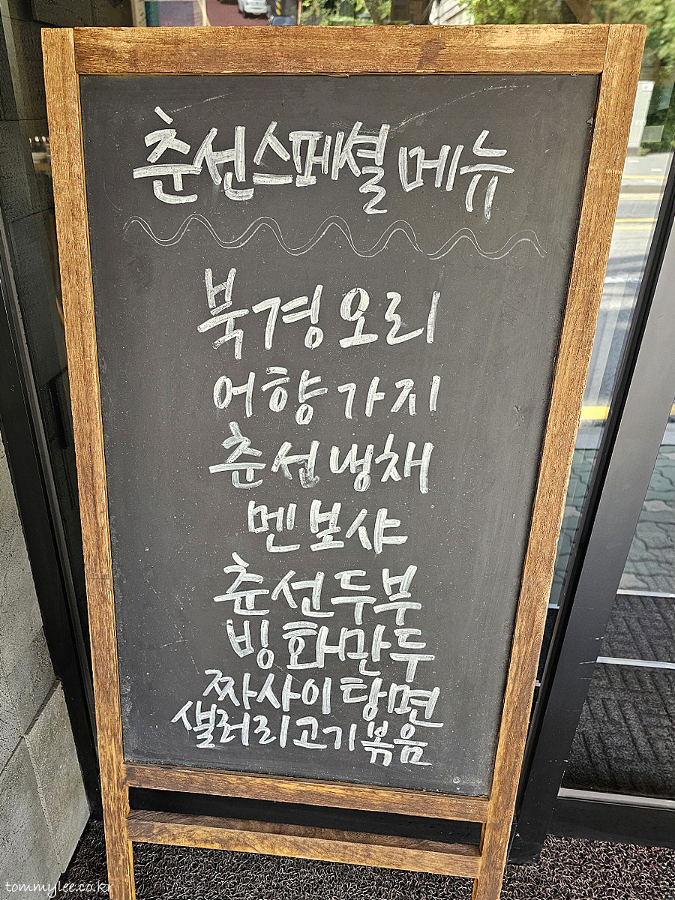 춘선스페셜 메뉴
북경 오리
어향 가지
춘선 냉채
멘보샤
춘선두부
빙화만두
짜사이탕면
샐러리고기볶음
tommylee.co.kr